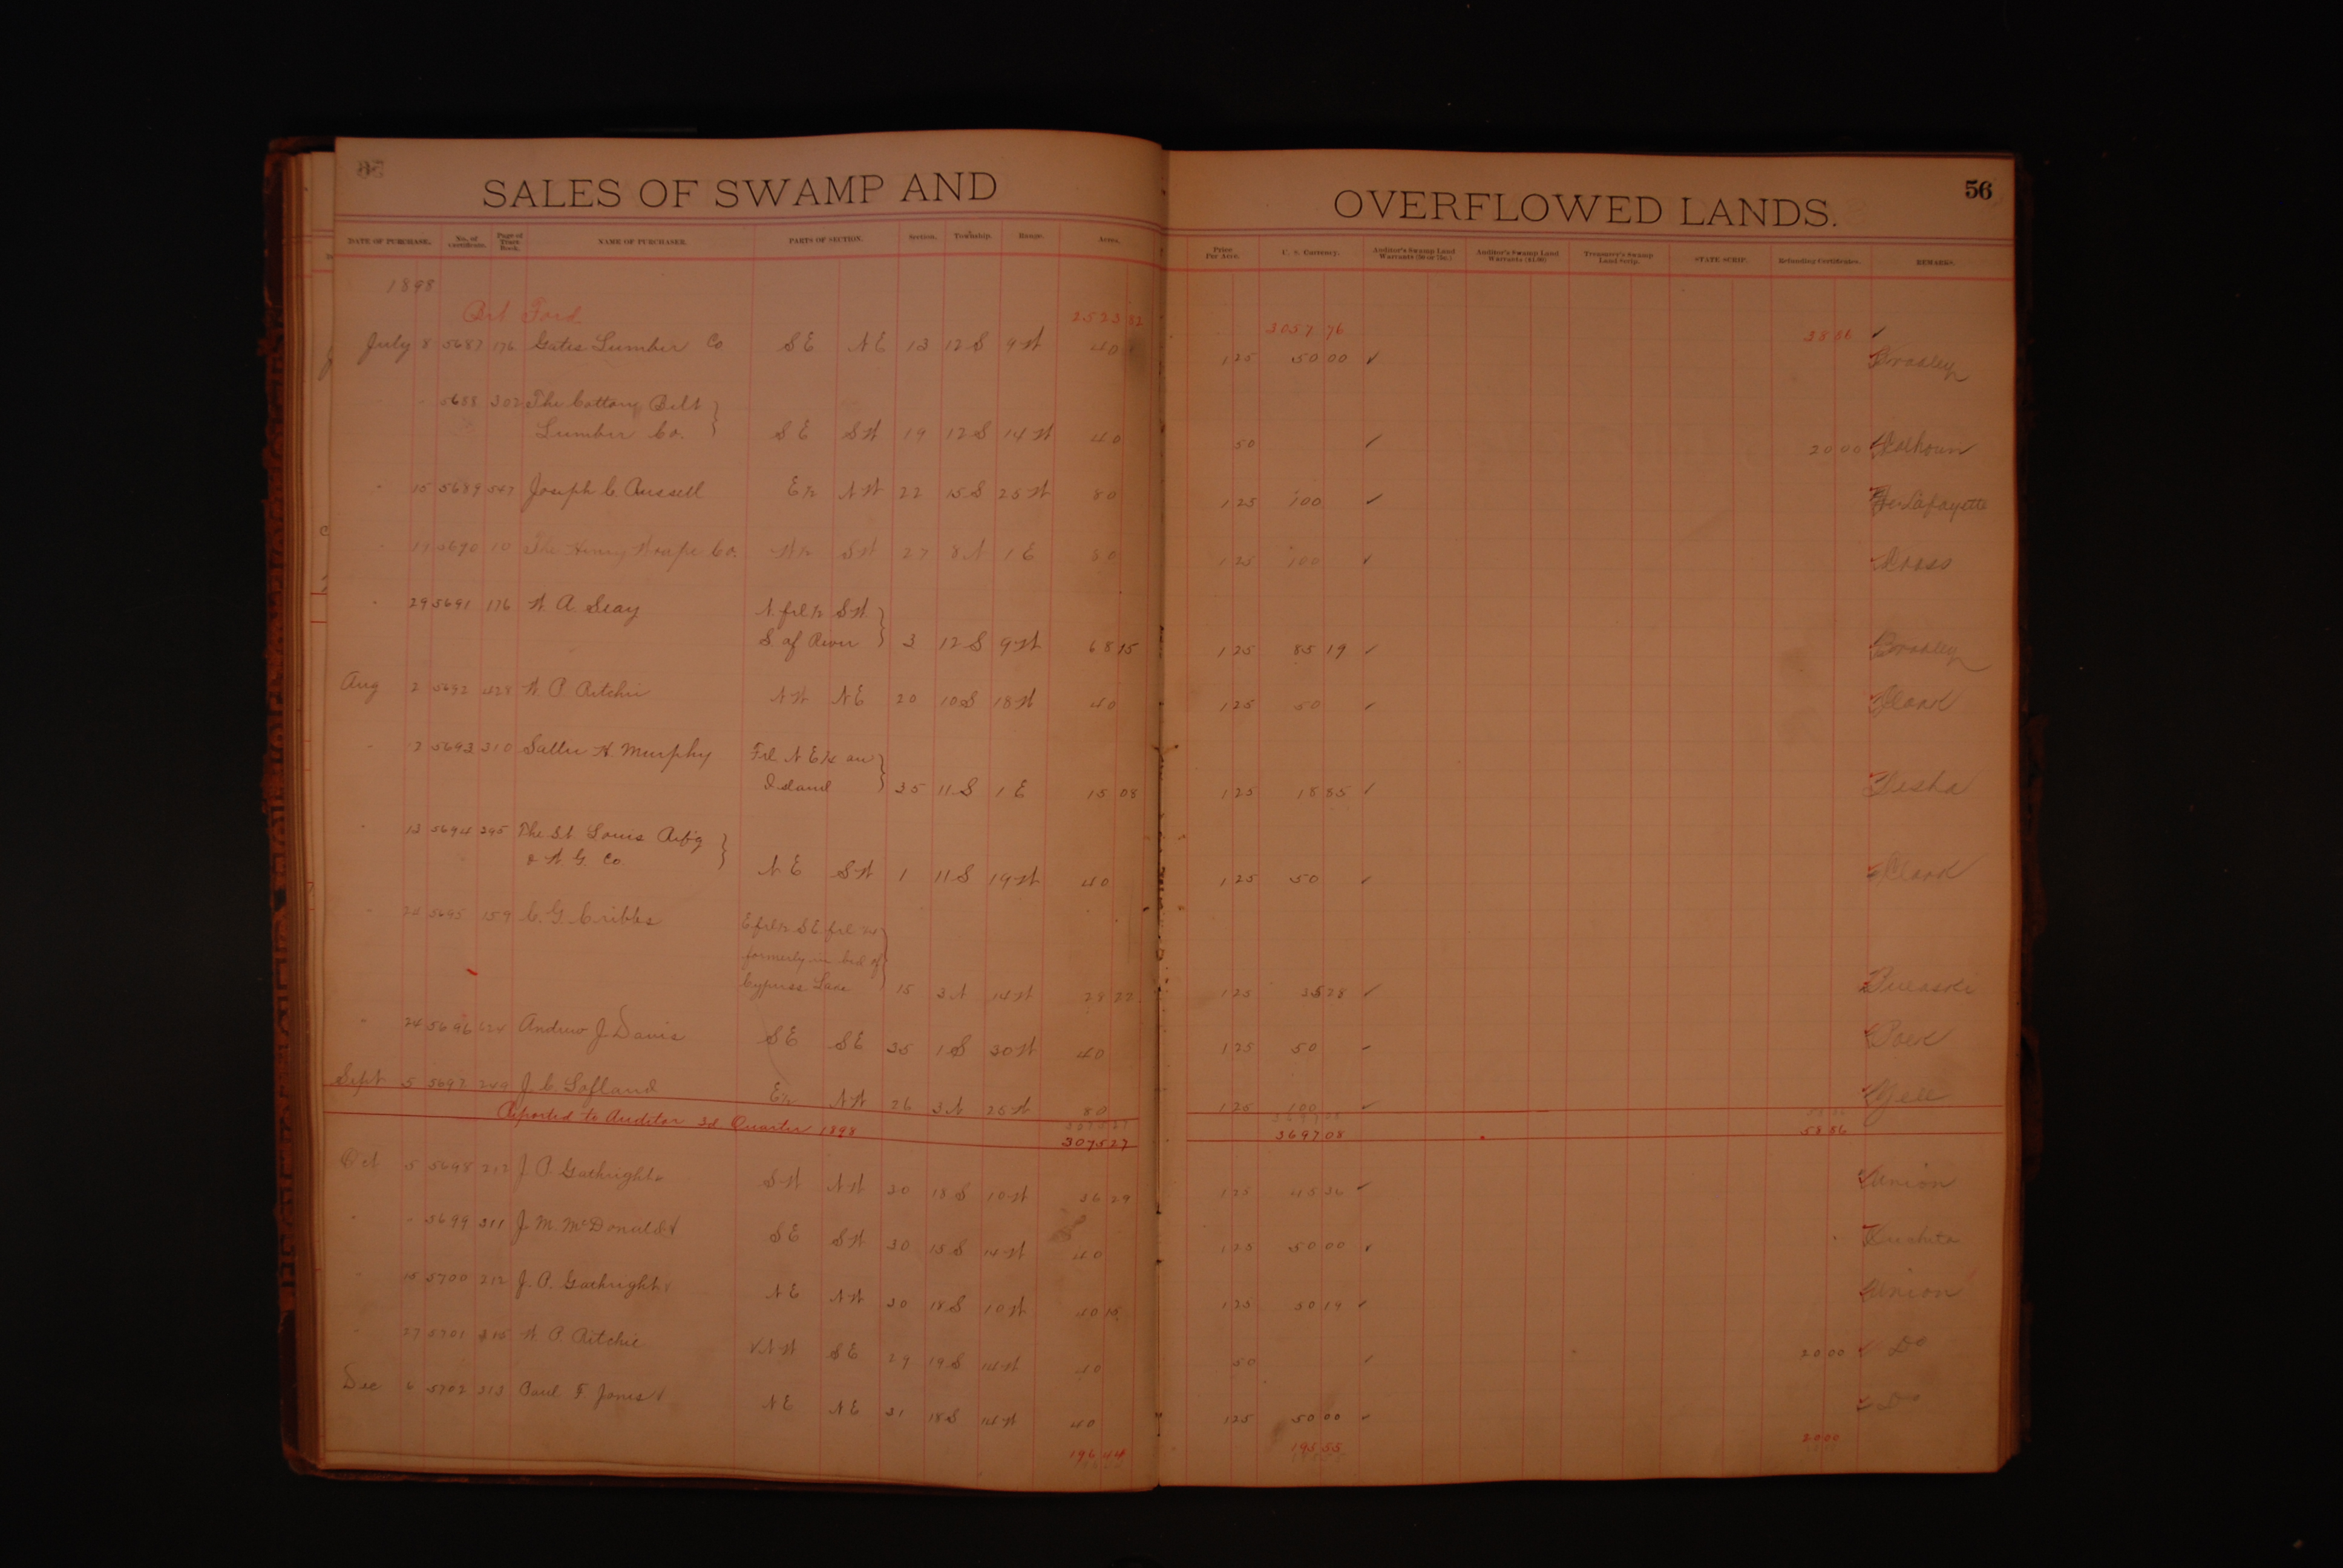 56
SALES OF SWAMP AND OVERFLOWED LANDS.
DATE OF PURCHASE. No. of Certificate. Page of Tract Book. NAME OF PURCHASER. PARTS OF SECTION. Section. Township. Range. Acres. Price Per Acre. U. S. Currency. Auditor's Swamp Land Warrants Auditor's Swamp Land Warrants Treasurer's Swamp Land Scrip. STATE SCRIP. Refunding Certificates. REMARKS.
1898
Brt Ford 2523 82 3057 76 38 56
July 8 5687 176 Gates Lumber Co SE NE 13 12S 9W 40 1 25 50 00 ✓ Bradley
" " 5688 302 The Cotton Belt
Lumber Co. SE SW 19 12S 14W 40 50 ✓ 20 00 Calhoun
" 15 5689 547 Joseph C. Russell E½ NW 22 15S 25W 80 1 25 100 ✓ Lafayette
" 19 5690 10 The Henry Wrape Co. W½ SW 27 8N 1E 80 1 25 100 ✓ Cross
" 29 5691 176 W. A. Seay N. frl ½ SW
S of River 3 12S 9W 68 15 1 25 85 19 ✓ Bradley
Aug 2 5692 428 W. P. Ritchie NW NE 20 10S 18W 40 1 25 50 ✓ Clark
" 13 5693 310 Sallie H. Murphy Frl. NE¼ on
Island 35 11S 1E 15 08 1 25 18 85 ✓ Desha
" 13 5694 295 The St Louis Ref'g
& W. G. Co. NE SW 1 11S 19W 40 1 25 50 ✓ Clark
" 24 5695 159 C. G. Cribbs E frl ½ SE frl ¼
formerly in bed of
Cypress Lake 15 3N 14W 28 22 1 25 35 28 ✓ Pulaski
" 24 5696 624 Andrew J. Davis SE SE 35 1S 30W 40 1 25 50 ✓ Polk
Sept 5 5697 249 J. C. Lofland E½ NW 26 3N 25W 80 1 25 100 ✓ Yell
Reported to Auditor 3d Quarter 1898 3075 27 3697 08 58 56
Oct 5 5698 212 J. P. Gathright SW NW 30 18S 10W 36 29 1 25 45 36 ✓ Union
" " 5699 311 J. M. McDonald ✓ SE SW 30 15S 14W 40 1 25 50 00 ✓ Ouchita
" 15 5700 212 J. P. Gathright ✓ NE NW 30 18S 10W 40 15 1 25 50 19 ✓ Union
" 27 5701 315 W. P. Ritchie ✓ NW SE 29 19S 14W 40 50 ✓ 20 00 ✓ Do
Dec 6 5702 313 Paul F. Jones ✓ NE NE 31 18S 14W 40 1 25 50 00 ✓ Do
196 44 195 55 20 00